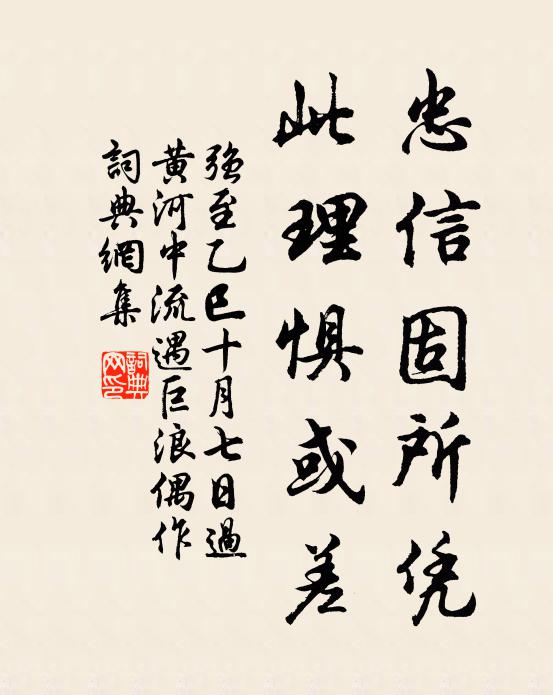 忠信固所凭
此理惧或差
强至乙巳十月七日過
黄河中流遇巨浪偶作
詞典網集
詞典
网印